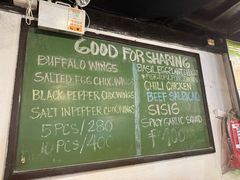 GOOD FOR SHARING
BUFFALO WINGS
SALTED EGG CHIX WINGS
BLACK PEPPER CHIX WINGS
SALT N PEPPER CHIX WINGS
5 PCS/280
10 PCS/400
BASIL EGGPLANT
CHILI CHICKEN
BEEF SALPICAO
SISIG
SPICY GARLIC SQUID